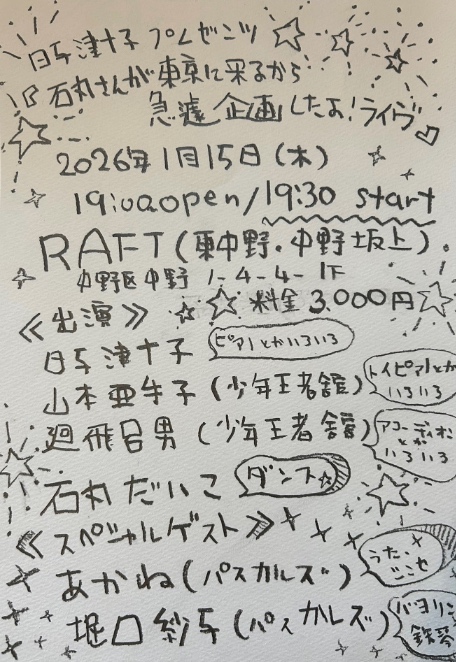 日与津十子 プレゼンツ
石丸さんが東京に来るから
急遽 企画 したよ！ライヴ♡
2026年1月15日（木）
19:00open/19:30 start
RAFT（東中野・中野坂上）
中野区中野 1-4-4-1F
☆ 料金 3,000円
≪出演≫
日与津十子 ピアノとかいろいろ
山本亜手子（少年王者舘） トイピアノとかいろいろ
廻飛呂男（少年王者舘） アコーディオンとかいろいろ
石丸だいこ ダンス☆
≪スペシャルゲスト≫
あかね（パスカルズ） うた、
堀口紗与（パスカルズ） バヨリン 鉄琴